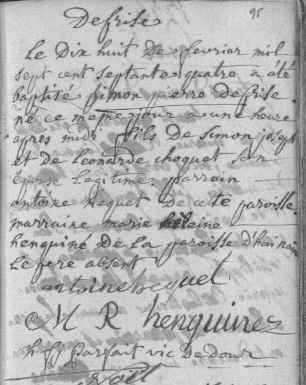 95
defrise
Le Dix huit De fevrier mil
sept cent septante quatre a été
baptisé simon pierre defrise
né ce meme jour a une heure
apres midi fils de simon joseph
et de leonarde choquet son
épouse legitime. parrain
antoine hequet de cette paroisse
marraine marie heleine
henquine de la paroisse d'hainin
Le pere absent
antoine hequel
M R henquinez
parfait vic de dour
Noël